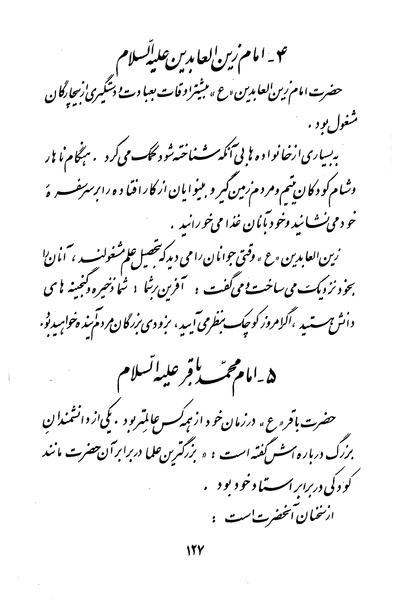 ۴ - امام زین العابدین علیه السّلام
حضرت امام زین العابدین «ع» بیشتر اوقات بعبادت و دستگیری از بیچارگان
مشغول بود .
به بسیاری از خانواده ها بی آنکه شناخته شود کمک می کرد . هنگام ناهار
و شام کودکان یتیم و مردم زمین گیر و بینوایان از کار افتاده را بر سر سفرهٔ
خود می نشانید و خود بآنان غذا می خورانید .
زین العابدین «ع» وقتی جوانان را می دید که بتحصیل علم مشغولند ، آنان را
بخود نزدیک می ساخت و می گفت : آفرین بر شما ! شما ذخیره و گنجینه های
دانش هستید ، اگر امروز کوچک بنظر می آیید ، بزودی بزرگان مردم آینده خواهید بود.
۵ - امام محمّد باقر علیه السّلام
حضرت باقر «ع» در زمان خود از همه کس عالمتر بود . یکی از دانشمندان
بزرگ درباره اش گفته است : « بزرگترین علما در برابر آن حضرت مانند
کودکی در برابر استاد خود بود .
از سخنان آنحضرت است :
۱۲۷